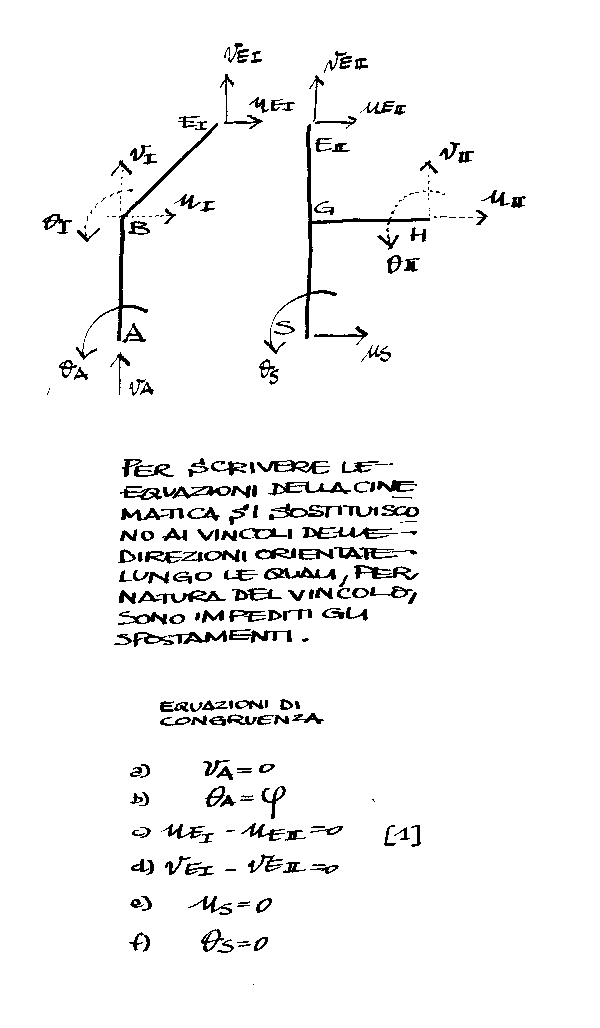 vEI vEII
EI uEI uEII
EII
vI vII
uI G uII
θI B H
θII
A S
θA θS uS
vA
PER SCRIVERE LE
EQUAZIONI DELLA CINE
MATICA, SI SOSTITUISCO
NO AI VINCOLI DELLE
DIREZIONI ORIENTATE
LUNGO LE QUALI, PER
NATURA DEL VINCOLO,
SONO IMPEDITI GLI
SPOSTAMENTI.
EQUAZIONI DI
CONGRUENZA
a) vA = 0
b) θA = φ
c) uEI - uEII = 0 [1]
d) vEI - vEII = 0
e) uS = 0
f) θS = 0